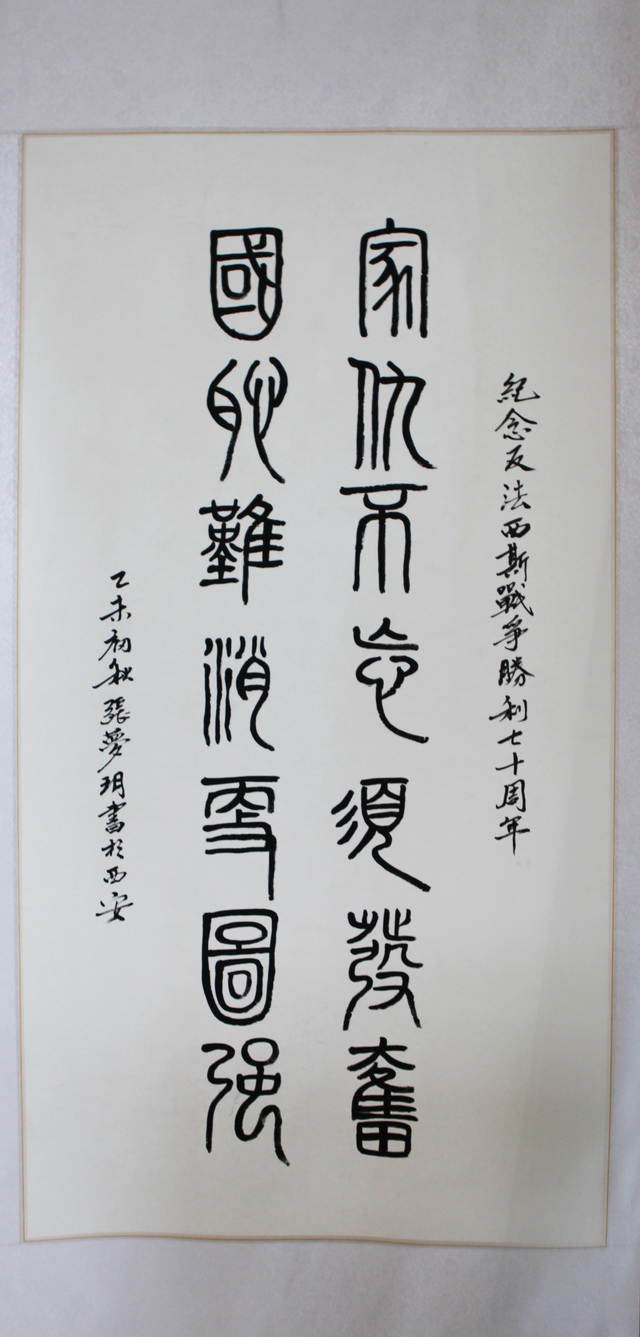 紀念反法西斯戰爭勝利七十周年
家仇不忘須發奮
國恥難消雪圖强
乙未初秋張夢玥書於西安